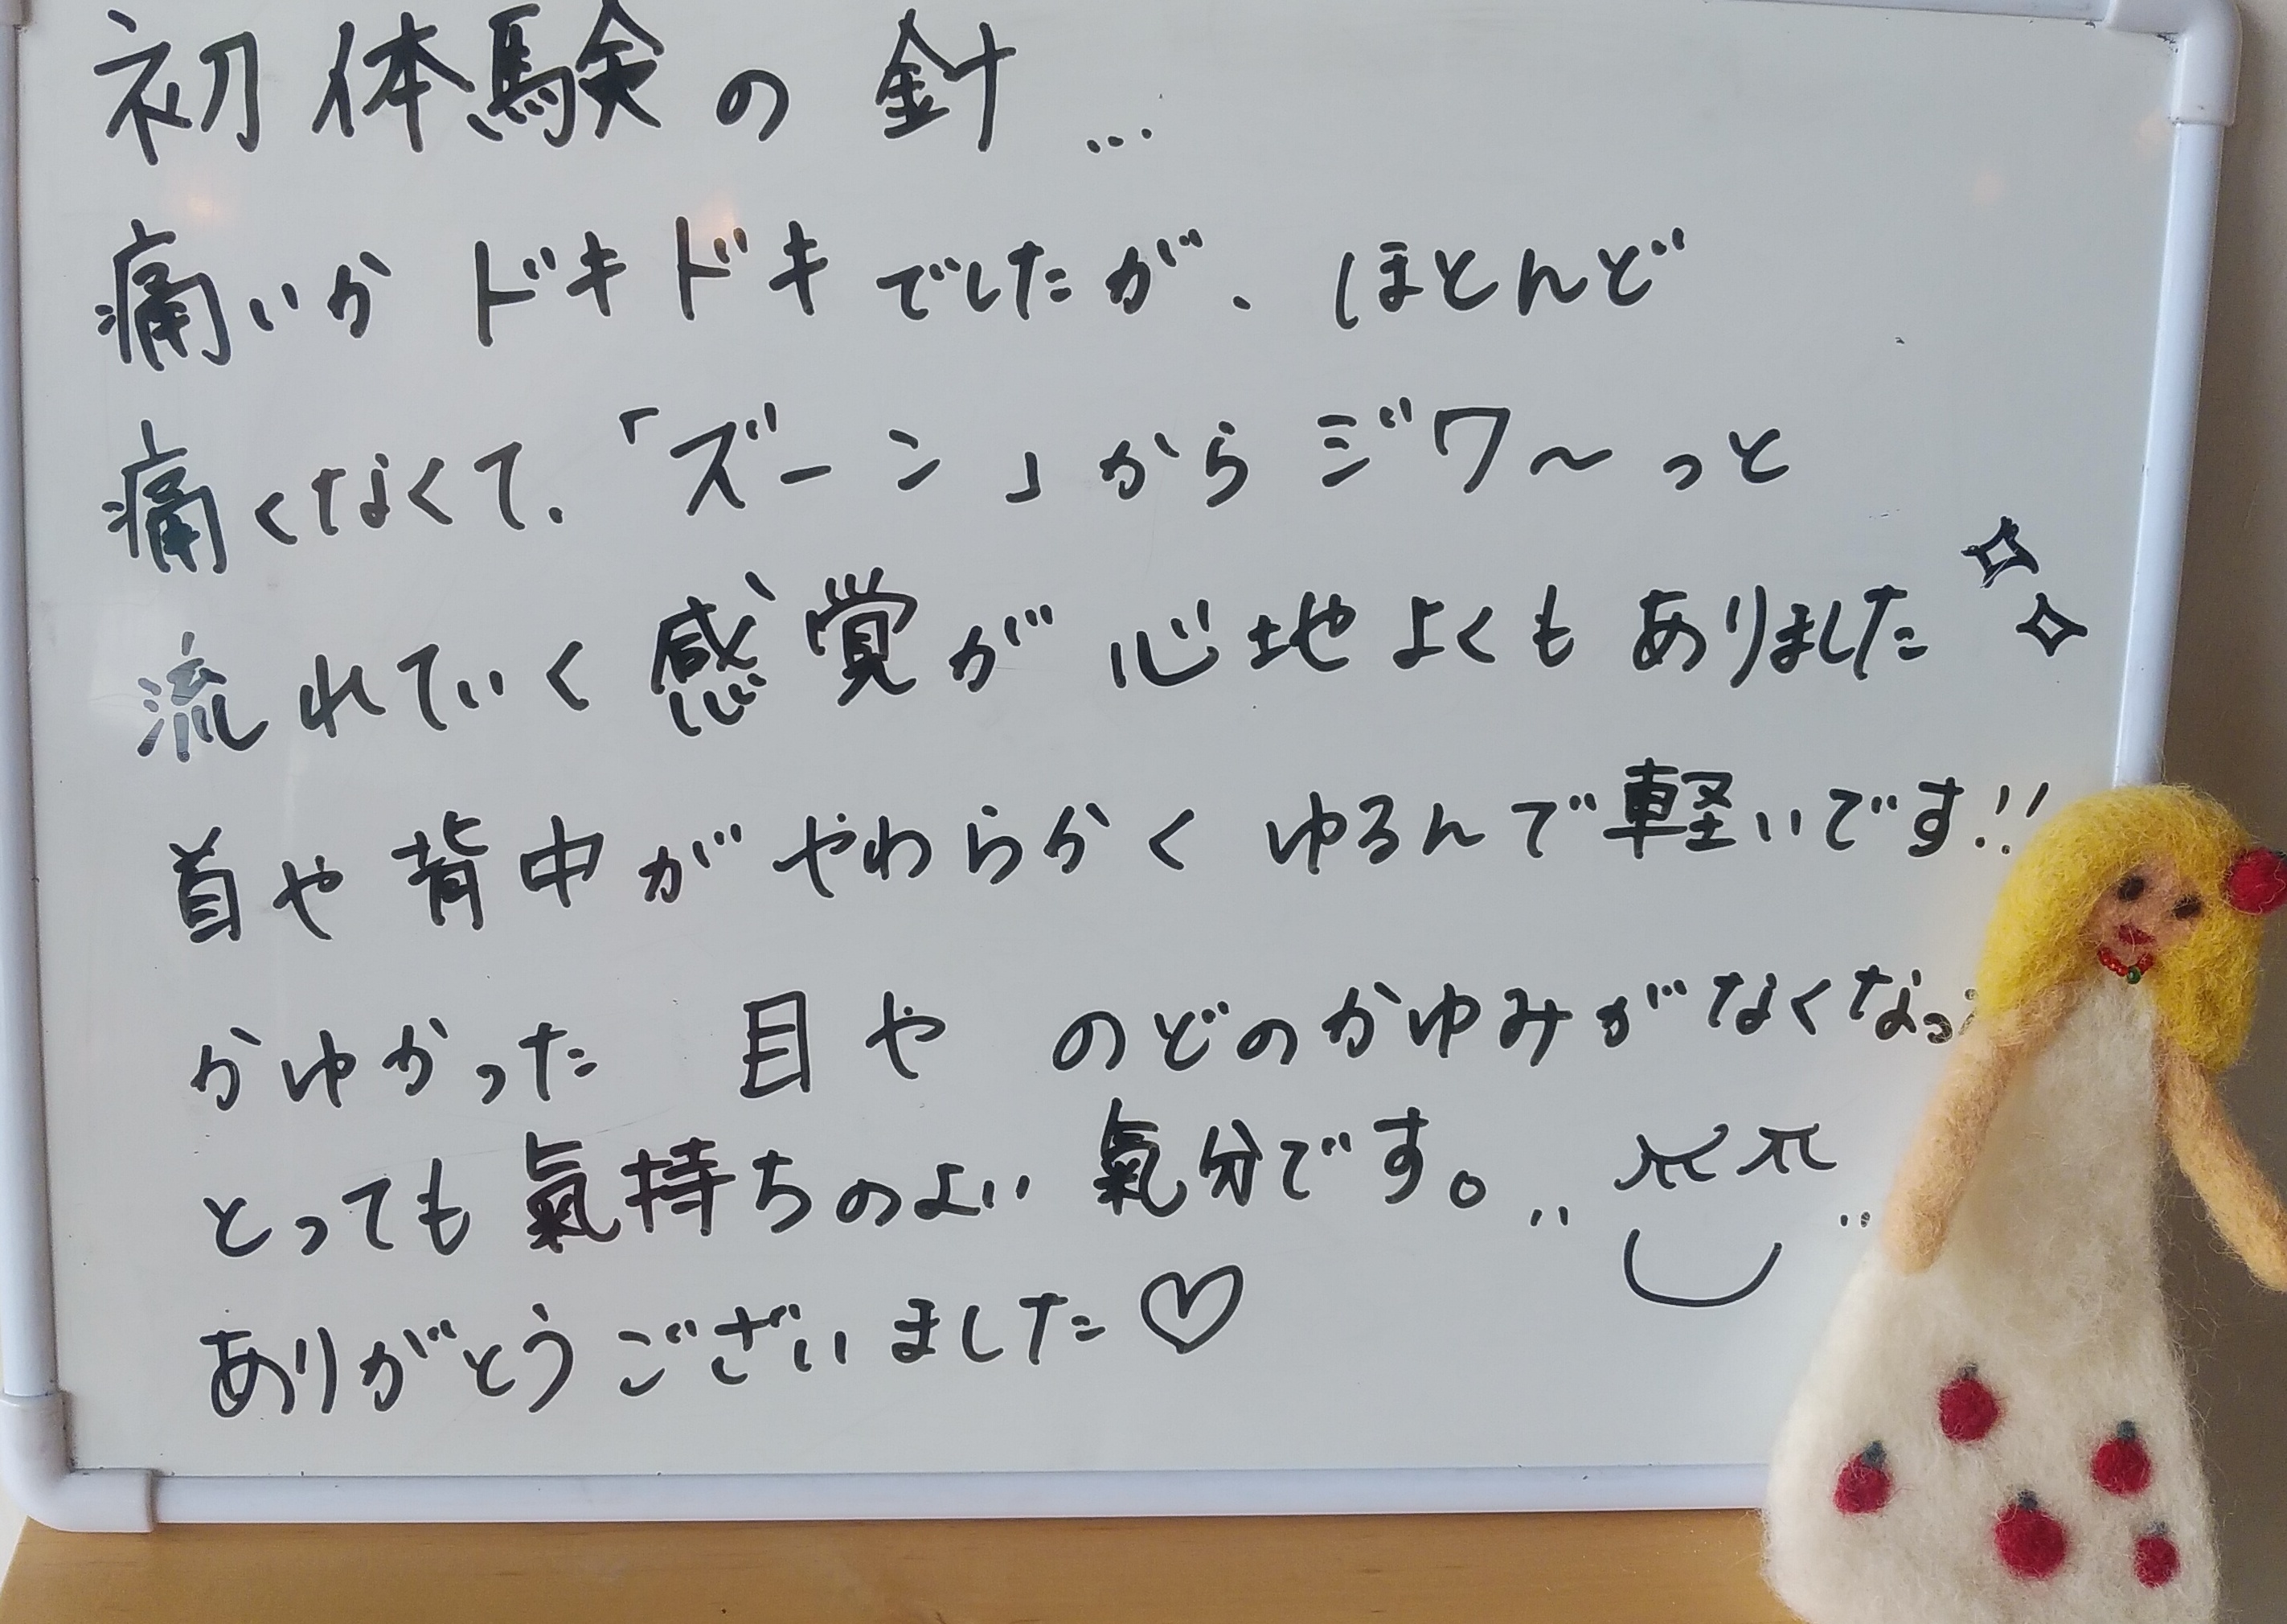 初体験の針...
痛いかドキドキでしたが、ほとんど
痛くなくて、「ズーン」からジワ〜っと
流れていく感覚が心地よくもありました
首や背中がやわらかくゆるんで軽いです!!
かゆかった 目や のどのかゆみがなくなっ
とっても氣持ちのよい氣分です。
ありがとうございました♡